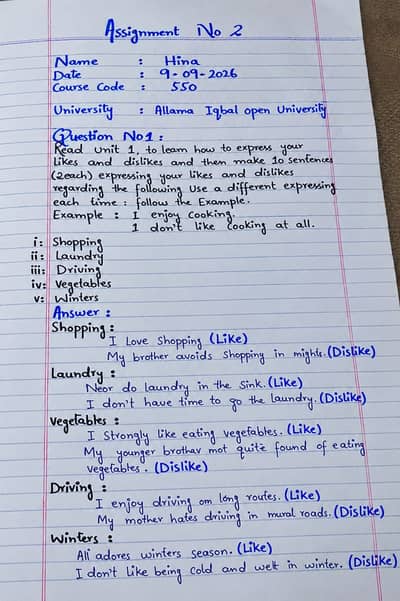 Assignment No 2
Name : Hina
Date : 9-09-2026
Course Code : 550
University : Allama Iqbal open University
Question No1:
Read Unit 1, to learn how to express your
likes and dislikes and then make 10 sentences
(2each) expressing your likes and dislikes
regarding the following Use a different expressing
each time : follow the Example.
Example : I enjoy Cooking.
I don't like Cooking at all.
i: Shopping
ii: Laundry
iii: Driving
iv: Vegetables
v: Winters
Answer :
Shopping :
I Love Shopping (Like)
My brother avoids Shopping in mights. (Dislike)
Laundry :
Neor do laundry in the Sink. (Like)
I don't have time to go the laundry. (Dislike)
Vegetables :
I Strongly like eating vegetables. (Like)
My younger brothar mot quite found of eating
vegetables. (Dislike)
Driving :
I enjoy driving om long routes. (Like)
My mother hates driving in mural roads. (Dislike)
Winters :
Ali adores winters season. (Like)
I don't like being cold and wet in winter. (Dislike)